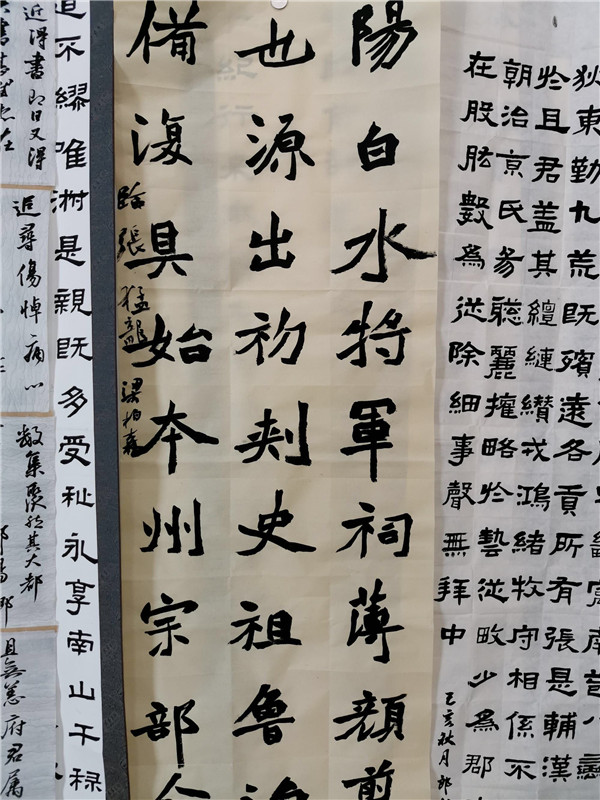 狄東勤九荒既殯遠各貢所有張是輔漢
於且君蓋其纏縺纘戎鴻緒牧守相係不
朝治京氏易聰麗權略於藝從畋少為郡
在股肱數為從除細事聲無拜中
己亥秋月
陽白水將軍祠薄顏
也源出初刾史祖魯
備復具始本州宗部
臨張猛龍 梁柏森
道不繆唯淅是親既多受祉永享南山干祿
近得書即日又得
追尋傷悼痛心
數集聚於其大都
府君屬